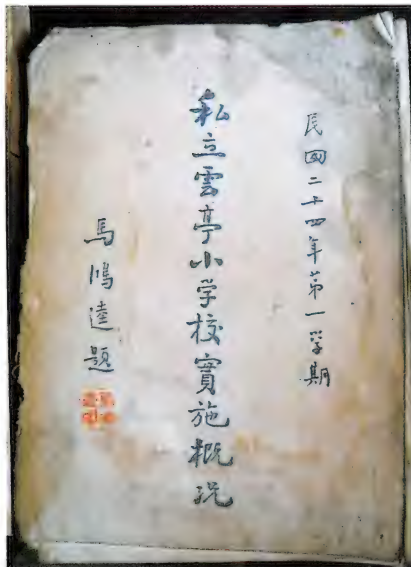 民国二十四年第一学期
私立雲亭小学校實施概况
馬鴻逵題